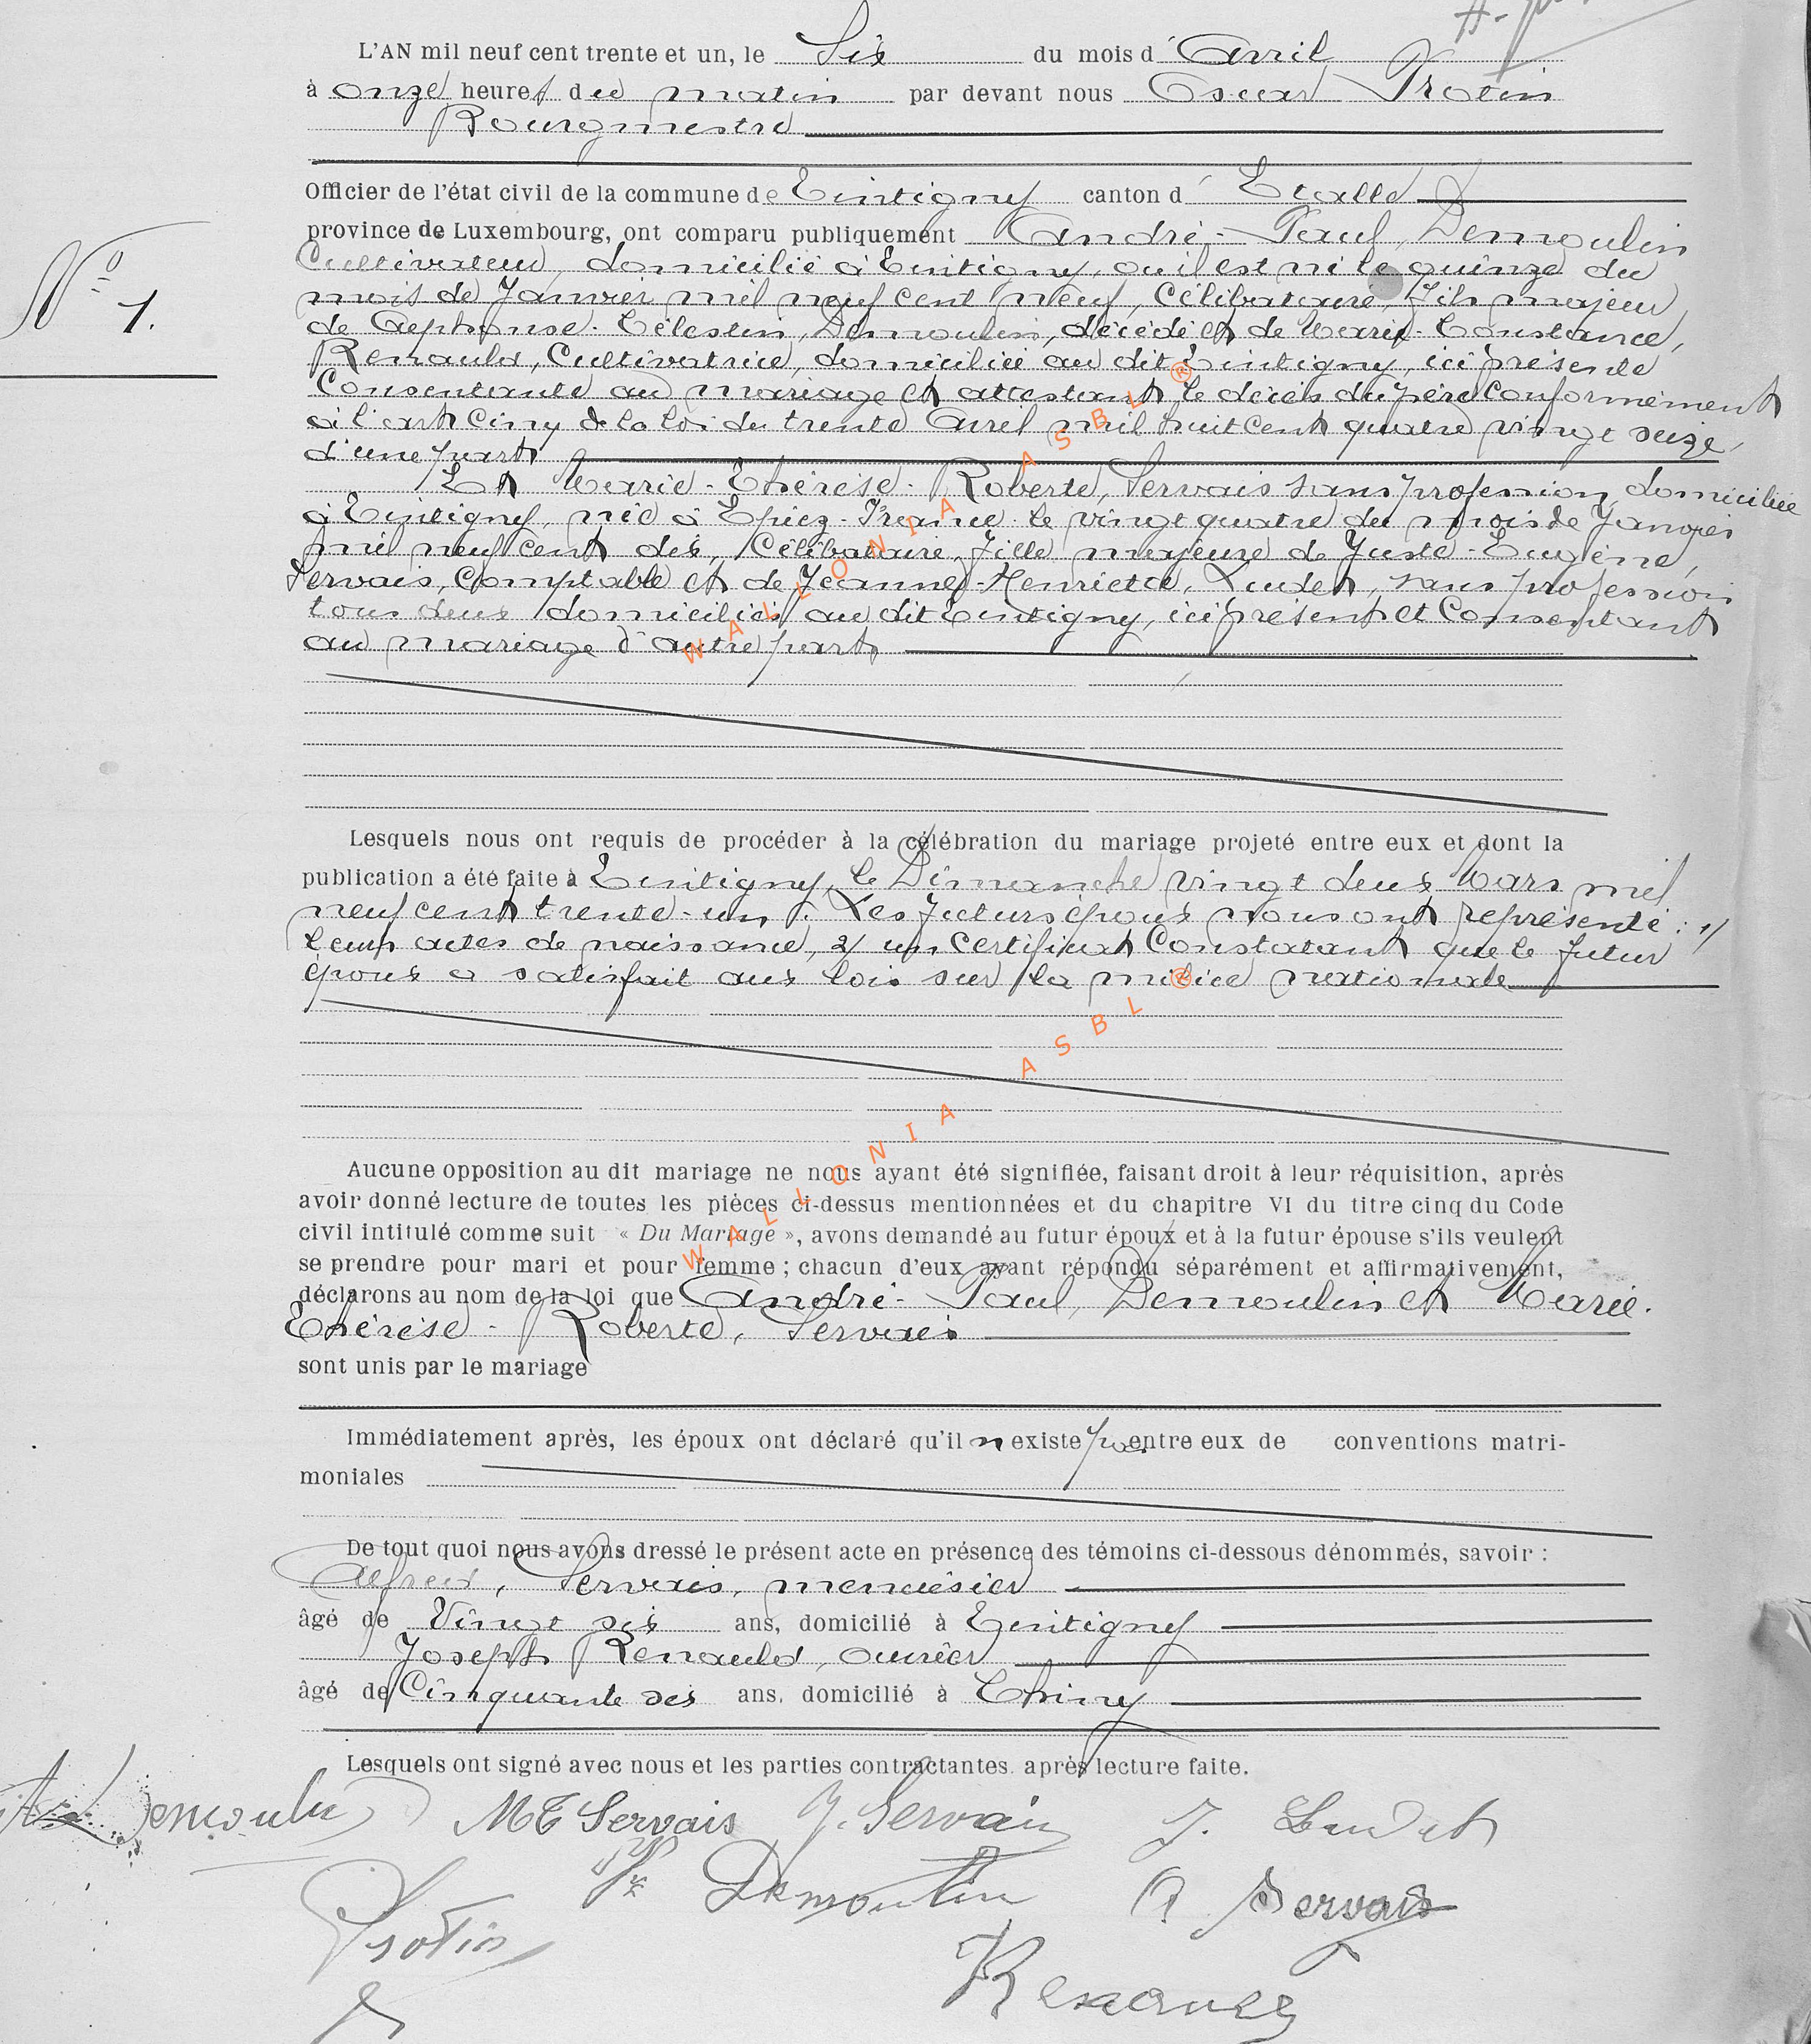 L'AN mil neuf cent trente et un, le Six du mois d'Avril
à onze heures du matin par devant nous Oscar Protin
Bourgmestre
Officier de l'état civil de la commune de Tintigny canton d' Etalle
province de Luxembourg, ont comparu publiquement André-Paul, Demoulin
Cultivateur, domicilié à Tintigny, où il est né le quinze du
mois de Janvier mil neuf cent neuf, Célibataire, fils majeur
de Alphonse-Célestin, Demoulin, décédé et de Marie-Constance,
Renauld, Cultivatrice, domiciliée au dit Tintigny, ici présente
Consentante au mariage et attestant le décès du père Conformément
à l'art cinq de la loi du trente Avril mil huit cent quatre vingt seize
d'une part
Et Marie-Thérèse-Roberte, Servais sans profession, domiciliée
à Tintigny, née à Epiez-France le vingt quatre du mois de Janvier
mil neuf cent dix, Célibataire, fille majeure de Juste-Eugène,
Servais, Comptable et de Jeanne-Henriette, Laudet, sans profession
tous deux domiciliés au dit Tintigny, ici présent et Consentant
au mariage d'autre part
N° 1.
Lesquels nous ont requis de procéder à la célébration du mariage projeté entre eux et dont la
publication a été faite à Tintigny, le Dimanche vingt deux Mars mil
neuf cent trente-un. Les futurs époux nous ont représenté : 1/
leurs actes de naissance, 2/ un certificat Constatant que le futur
époux a satisfait aux lois sur la milice nationale
Aucune opposition au dit mariage ne nous ayant été signifiée, faisant droit à leur réquisition, après
avoir donné lecture de toutes les pièces ci-dessus mentionnées et du chapitre VI du titre cinq du Code
civil intitulé comme suit « Du Mariage », avons demandé au futur époux et à la futur épouse s'ils veulent
se prendre pour mari et pour femme ; chacun d'eux ayant répondu séparément et affirmativement,
déclarons au nom de la loi que André-Paul, Demoulin et Marie-
Thérèse-Roberte, Servais
sont unis par le mariage
Immédiatement après, les époux ont déclaré qu'il n existe pas entre eux de conventions matri-
moniales
De tout quoi nous avons dressé le présent acte en présence des témoins ci-dessous dénommés, savoir :
Alfred, Servais, menuisier
âgé de Vingt six ans, domicilié à Tintigny
Joseph Renauld, ouvrier
âgé de Cinquante six ans, domicilié à Chiny
Lesquels ont signé avec nous et les parties contractantes après lecture faite.
Demoulin MT Servais J. Servais J. Laudet
Demoulin A Servais
Protin
Renauld
WALLONIA ASBL ®
WALLONIA ASBL ®